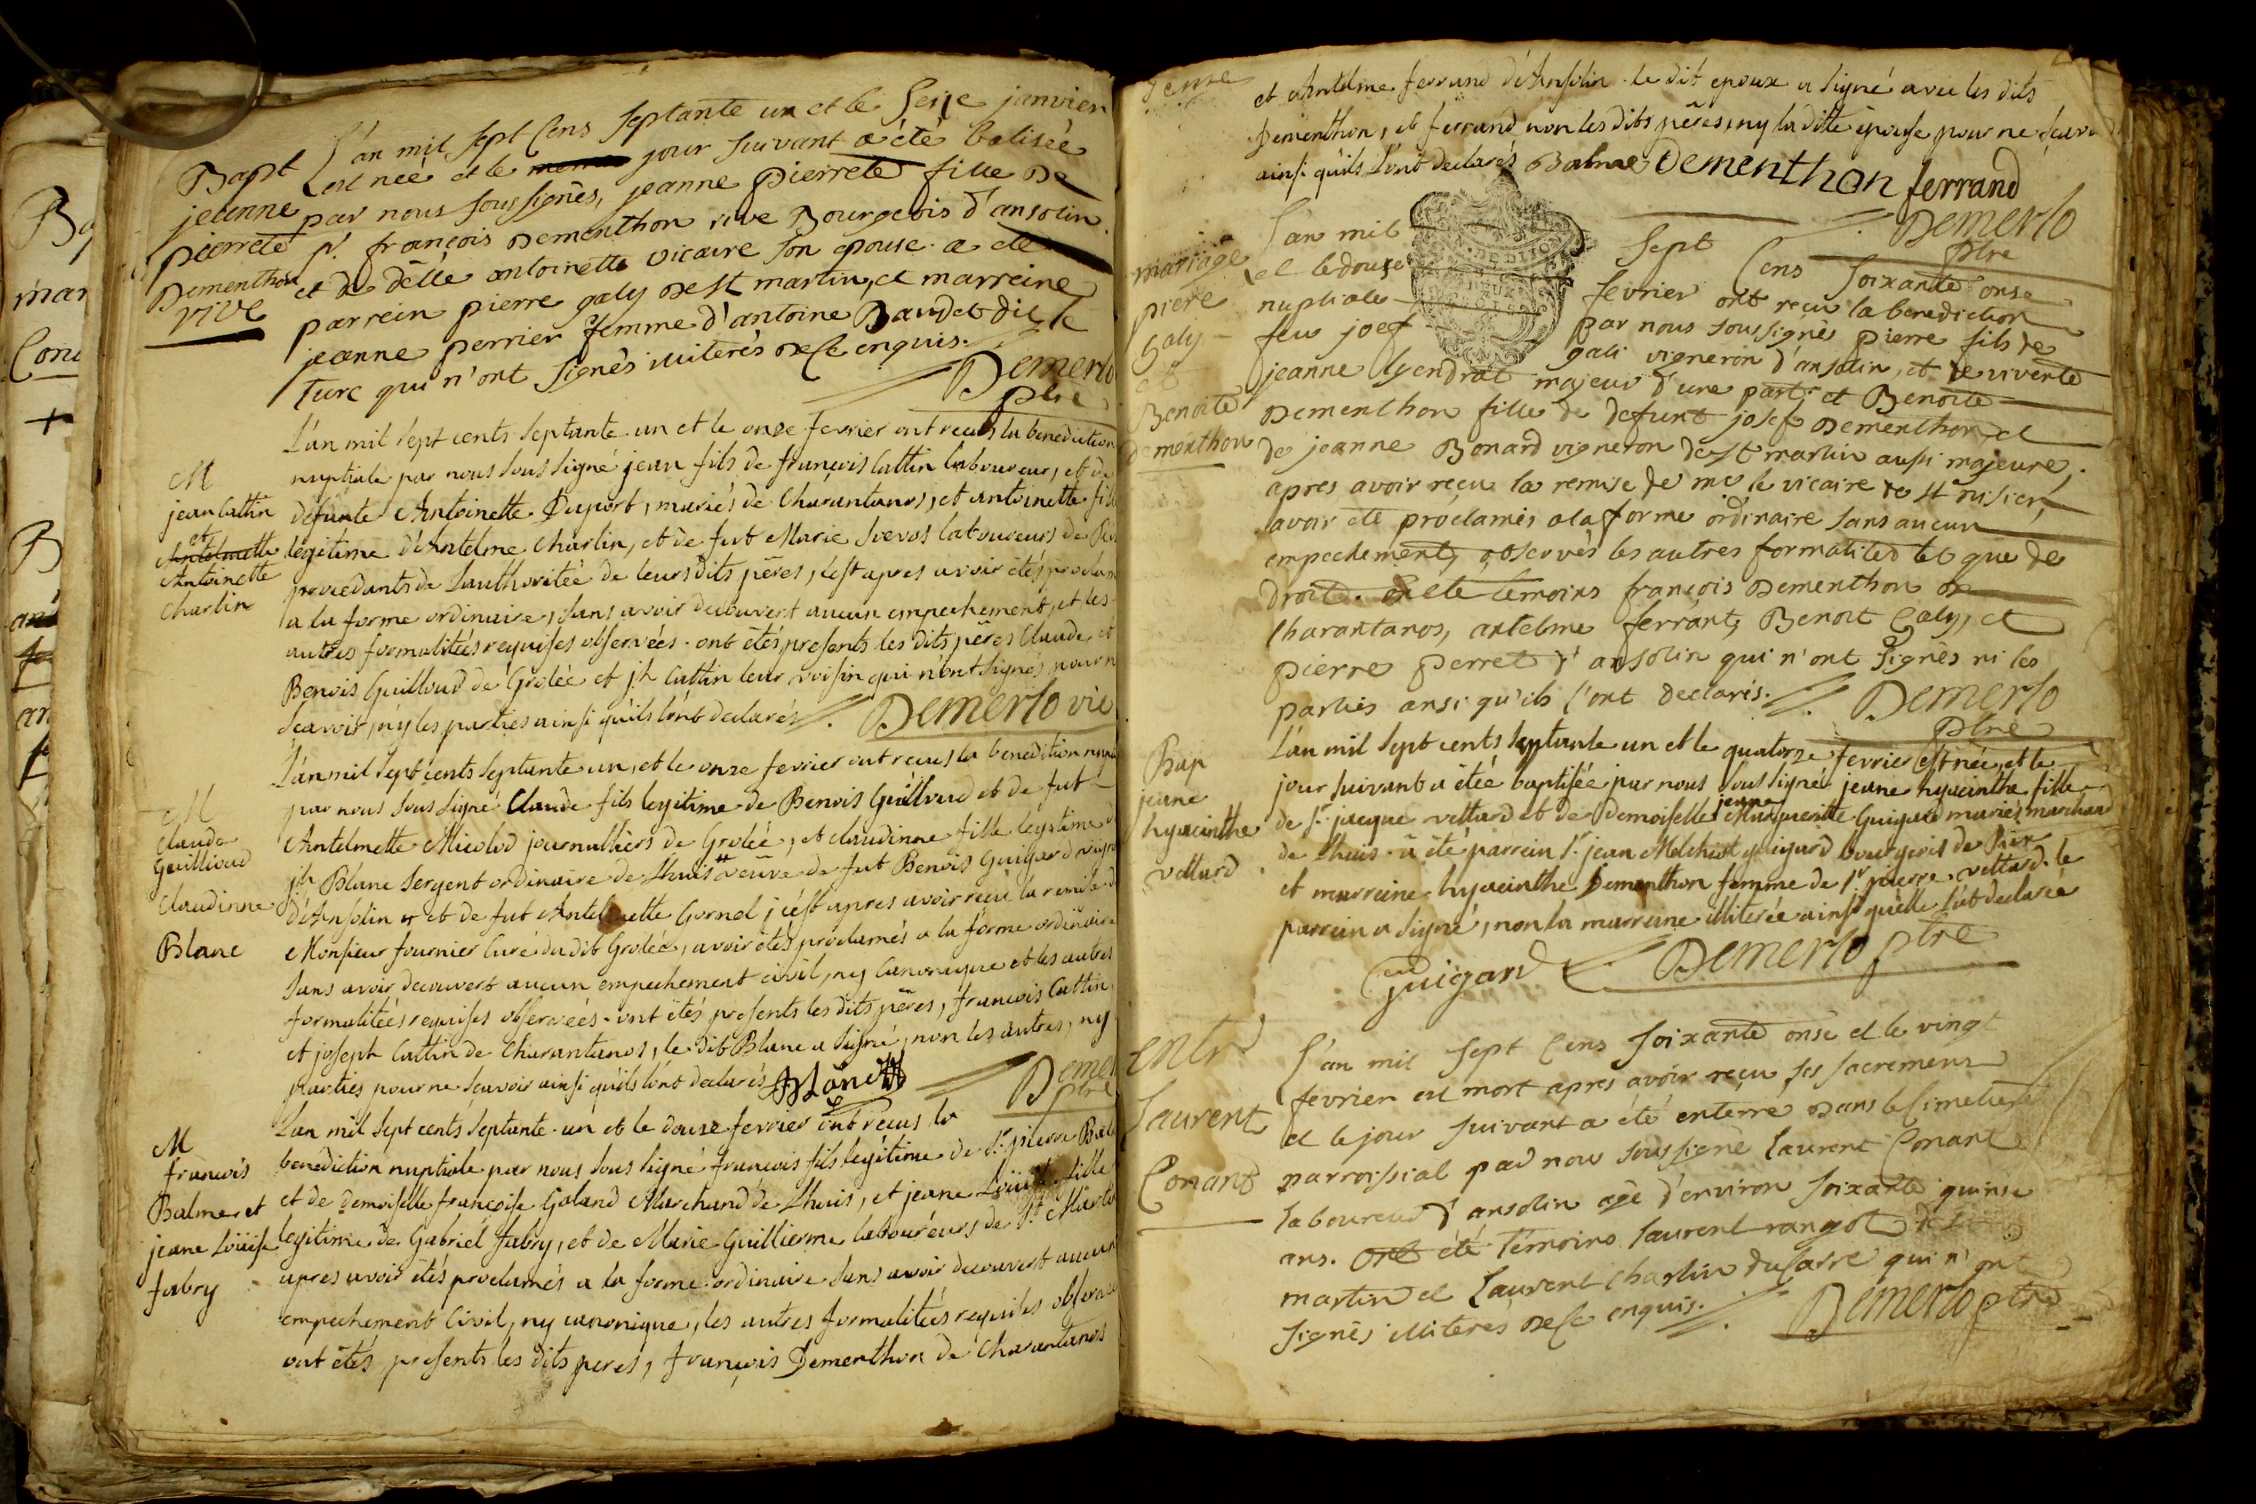 Bapt
jeanne
pierrete
Dementhon
rive
L'an mil sept cens septante un et le seize janvier
est neé et le jour suivant a été batisée
par nous soussignés, jeanne pierrete fille de
Sr françois Dementhon rive Bourgeois d'ansolin
et de dèlle antoinette vicaire son epouse a ete
parrein pierre galy de st martin, et marreine
jeanne perrier femme d'antoine Baudet dit le
turc qui n'ont signés illiterés de ce enquis.
Demerlo
ptre
M
jean Cattin
et
Antelmette
Antoinette
Charlin
L'an mil sept cents septante un et le onze fevrier ont recus la benediction
nuptiale par nous sous signé jean fils de françois Cattin laboureur, et de
défunte Antoinette Duport, mariés de Charantanos, et antoinette fille
légitime d'Antelme Charlin, et de fut Marie laboureurs de
procedants de l'authoritée de leurs dits pères, c'est apres avoir étés proclamés
a la forme ordinaire, sans avoir decouvert aucun empechement, et les
autres formalités requises observées. ont étés presents les dits pères Claude, et
Benois Guilloud de Grolée et jh Cattin leur voisin qui n'ont signés pour ne
scavoir, ny les parties ainsi qu'ils l'ont declarés. Demerlo vic
M
Claude
Guillioud
Claudinne
Blanc
L'an mil sept cents septante un, et le onze fevrier ont recus la benedition nuptiale
par nous sous signé Claude fils legitime de Benois Guilloud et de fut
Antelmette Micolod journalliers de Grolée, et claudinne fille legitime de
jh Blanc sergent ordinaire de Lhuis veuve de fut Benois Guigard vigneron
d'Ansolin et de fut Antelmette Gornel, c'est apres avoir reçu la remise de
Monsieur fournier Curé du dit Grolée, avoir étés proclamés a la forme ordinaire
sans avoir decouvert aucun empechement civil, ny canonique et les autres
formalitées requises observeés. ont étés presents les dits pères, françois Cattin,
et joseph Cattin de Charantanos, le dit Blanc a signé, non les autres, ny
parties pour ne scavoir ainsi qu'ils l'ont declarés Blanc
Demerlo
ptre
M
francois
Balme et
jeane Loüise
fabry
L'an mil sept cents septante un et le douze fevrier ont recus la
benédiction nuptiale par nous sous signé francois fils legitime de Sr pierre Balme
et de Demoiselle françoise Goland Marchand de Lhuis, et jeane Loüise fille
legitime de Gabriel fabry, et de Marie Guillierme laboureurs de St Martin
apres avoir étés proclamés a la forme ordinaire sans avoir decouvert aucun
empechement Civil, ny canonique, les autres formalitées requises observées
ont étés presents les dits peres, françois Dementhon de Charantanos
et Antelme ferrand d'Ansolin. le dit epoux a signé avec les dits
Dementhon, et ferrand, non les dits pères, ny la ditte épouse pour ne scavoir
ainsi qu'ils l'ont declarés Balme Dementhon ferrand
Demerlo
ptre
mariage
piere
Galy
et
Benoite
dementhon
L'an mil sept Cens soixante onse
et le douse fevrier ont reçu la benediction
nuptiale par nous soussignés pierre fils de
feu josef gali vigneron d'ansolin, et de vivente
jeanne Gendrat majeur d'une part et Benoite
Dementhon fille de defunt josef Dementhon, et
de jeanne Bonard vigneron de st martin aussi majeure.
apres avoir reçu la remise de mr le vicaire de st nisier,
avoir été proclamés a la forme ordinaire sans aucun
empechement, observés les autres formalites tels que de
droit. ont été temoins françois Dementhon de
Charantanos, antelme ferrant, Benoit Caly, et
pierre perret d'ansolin qui n'ont signés ni les
parties ansi qu'ils l'ont declarés. Demerlo
ptre
Bap
jeane
hyacinthe
vettard
L'an mil sept cents septante un et le quatorze fevrier est née, et le
jour suivant a étée baptisée par nous sous signé jeane hyacinthe fille
de Sr jacque vettard et de Demoiselle jeane Marguerite Guigard mariés marchand
de Lhuis. a été parrein Sr jean Melchiot guigard bourgeois de
et marreine hyacinthe Dementhon femme de Sr pierre vettard. le
parrein a signé, non la marreine illiterée ainsi qu'elle l'at declarée
Guigard Demerlo ptre
entr
Laurent
Conant
L'an mil sept Cens soixante onse et le vingt
fevrier est mort apres avoir reçu ses sacremens
et le jour suivant a été enterré dans le Cimetiere
parroissial par nous soussigné Laurent Conant
laboureur d'ansolin agé d'environ soixante quinse
ans. ont été temoins Laurent rangot de st
martin et Laurent Charlin du sarre qui n'ont
signés illiterés de ce enquis. Demerlo ptre